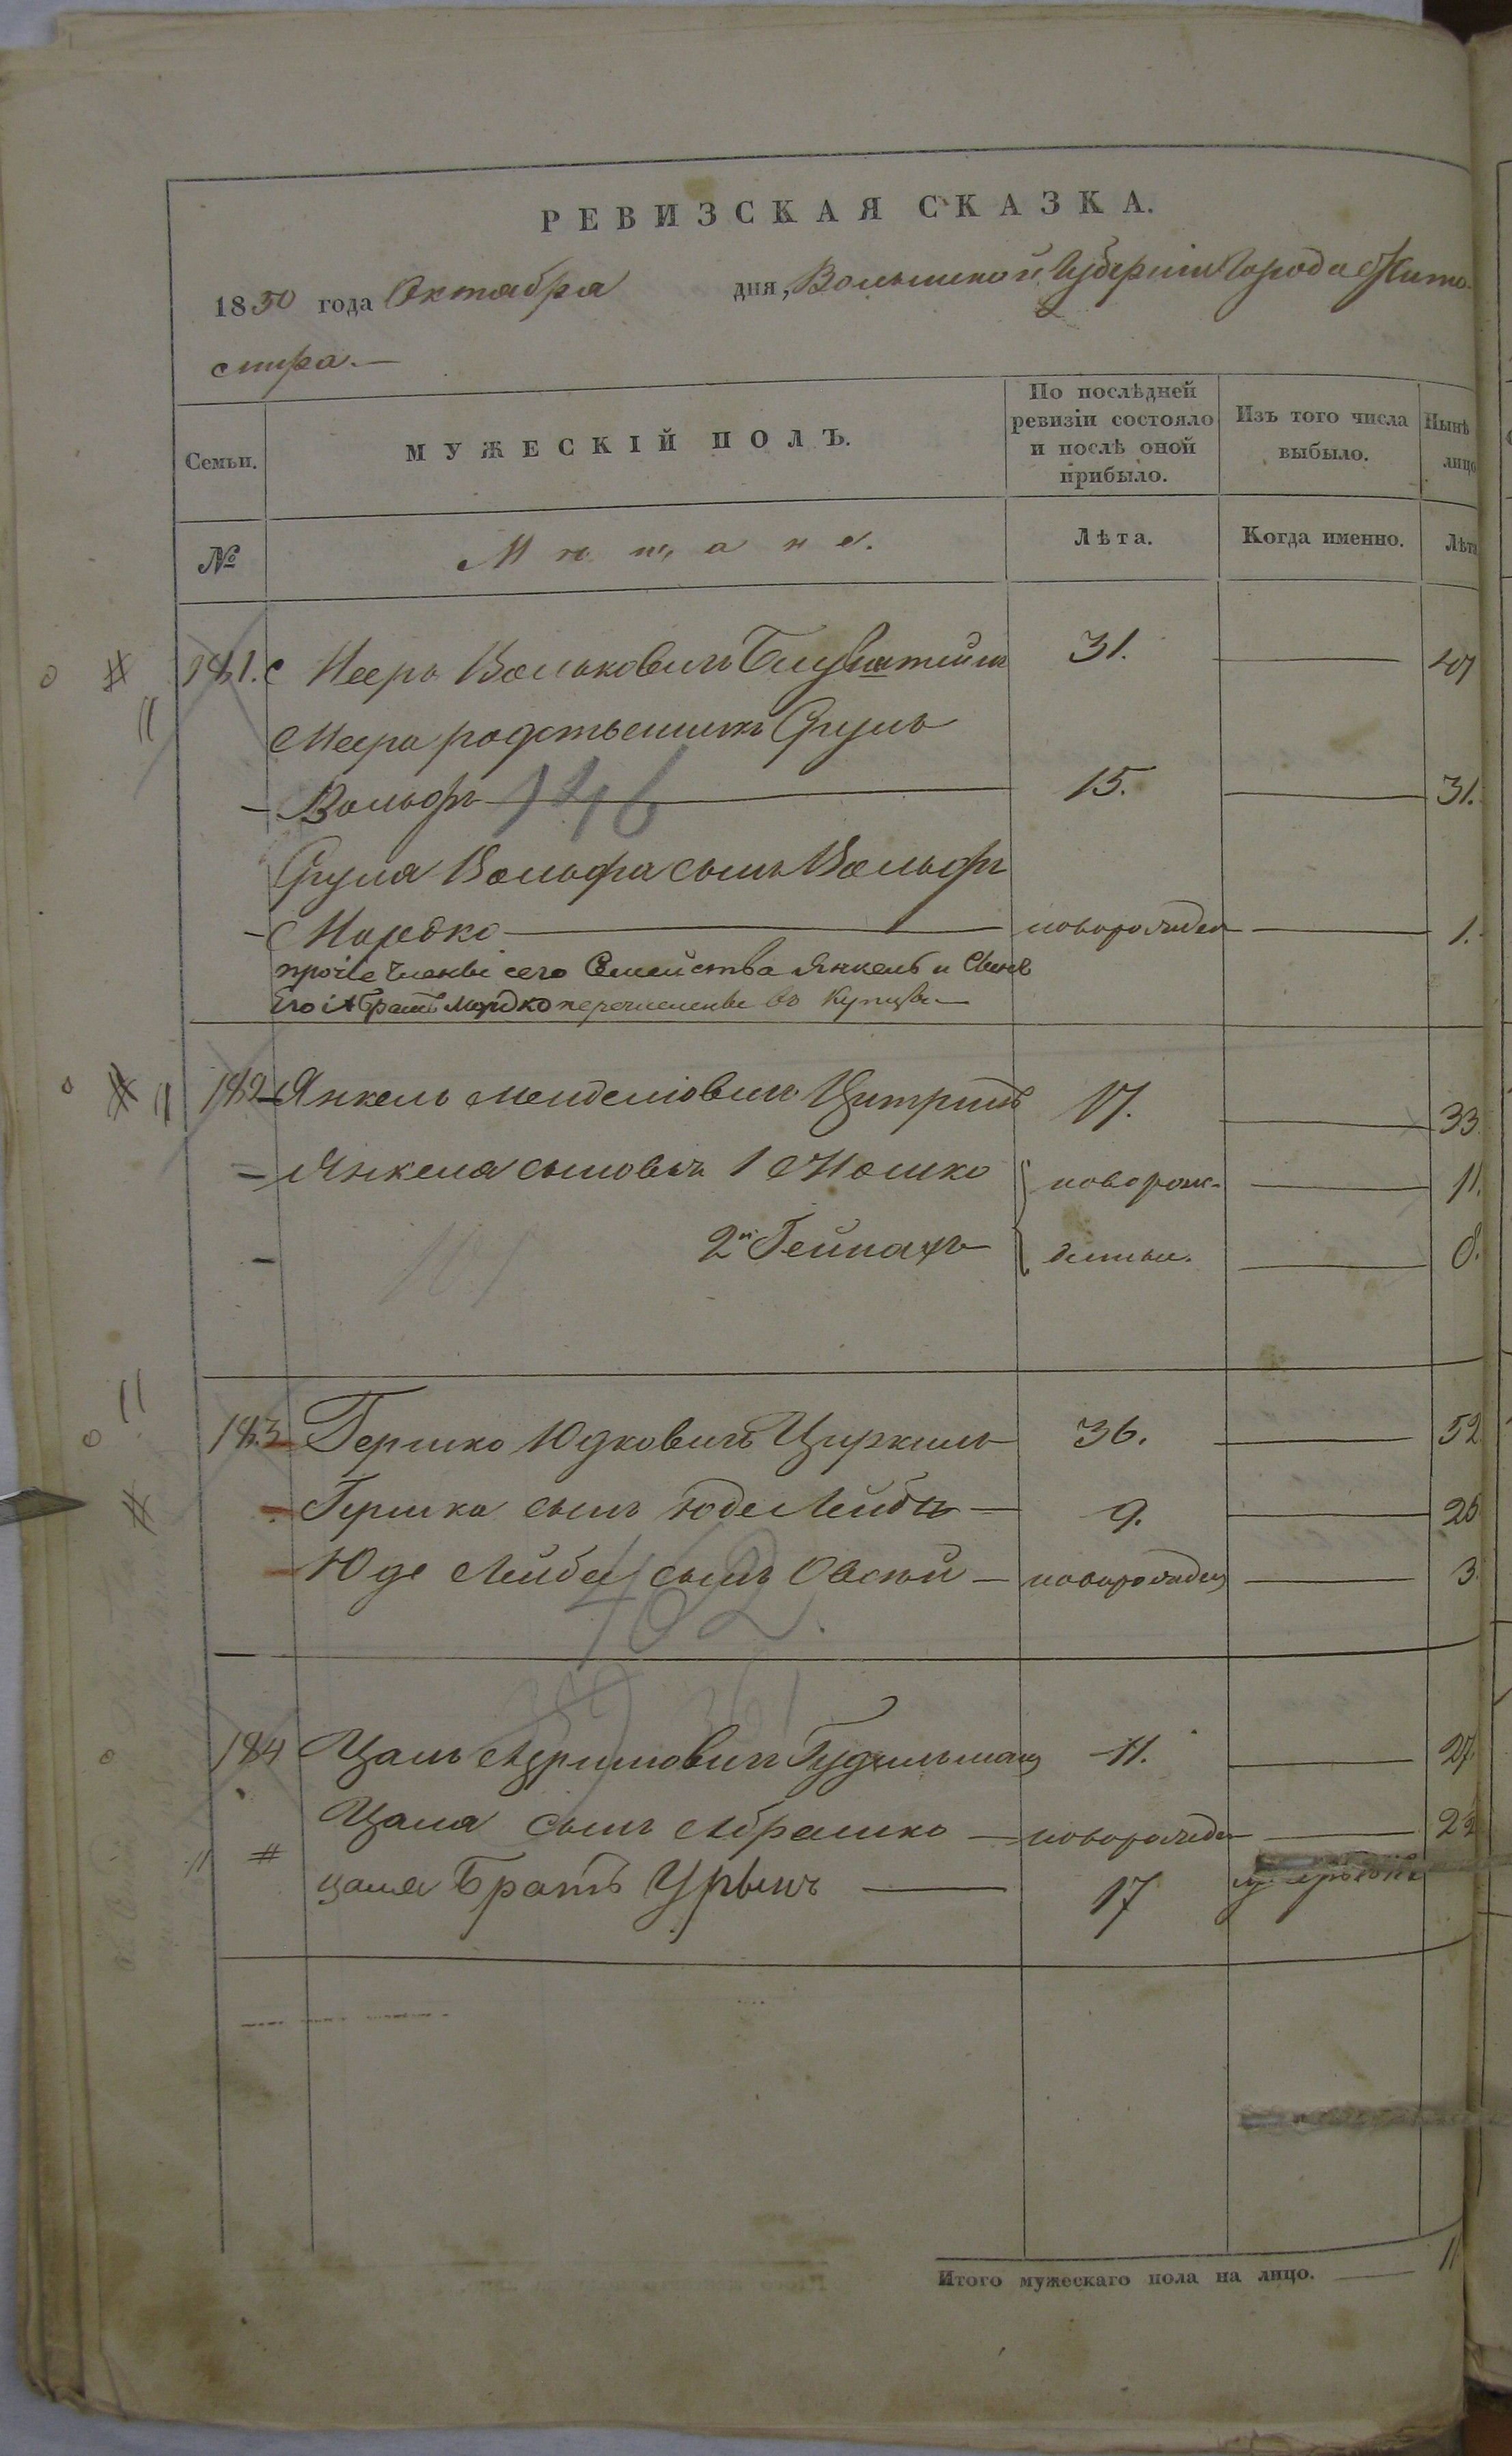 РЕВИЗСКАЯ СКАЗКА.
1850 года Октября дня, Волынской Губерніи Города Жито-
мира. —
Семьи. МУЖЕСКІЙ ПОЛЪ. По послѣдней ревизіи состояло и послѣ оной прибыло. Изъ того числа выбыло. Нынѣ лицо
№ Мѣщане. Лѣта. Когда именно. Лѣта
181. Мееръ Вольковичъ 31. — 47
Меера родственникъ Сруль
Вольфъ — 146 15. — 31.
Сруля Вольфа сынъ Вольфъ
Мордко — новорожден — 1.
прочіе члены сего Семейства Янкель и Сынъ
Его і братъ Мордко перечислены въ купцы —
182 Янкель Менделіовичъ Цитринъ 17. — 33
Янкеля сыновья 1 Мошко новорож- — 11.
2й Гейнахъ денные. — 8.
183 Гершко Юдковичъ Циркинъ 36. — 52
Гершка сынъ Юде Лейба — 9. — 25
Юде Лейба сынъ Овсѣй — новорожден — 3
162.
361
184 Цаль Абрамовичъ Гудзельманъ 11. — 27
Цаля сынъ Абрамко — новорожден — 2
цаля Братъ Урынъ — 17
Итого мужескаго пола на лицо. — 11